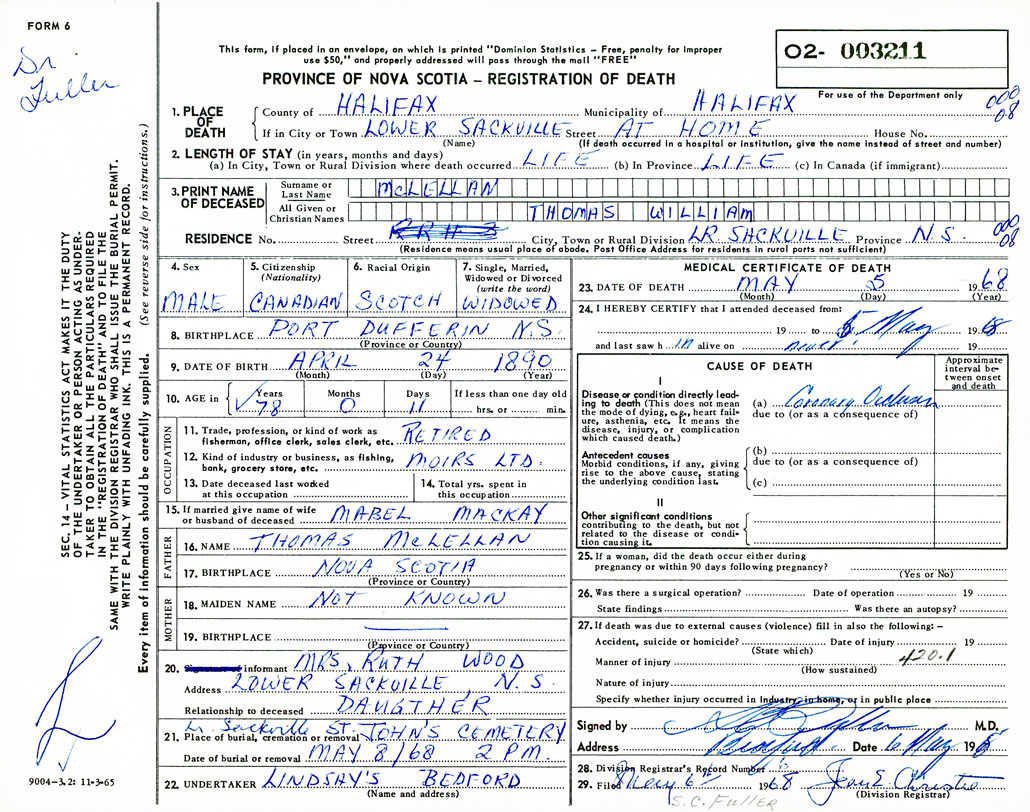 FORM 6
Dr Fuller
This form, if placed in an envelope, on which is printed "Dominion Statistics – Free, penalty for improper
use $50," and properly addressed will pass through the mail "FREE"
PROVINCE OF NOVA SCOTIA – REGISTRATION OF DEATH
O2- 003211
For use of the Department only
000
08
1. PLACE OF DEATH { County of HALIFAX Municipality of HALIFAX
If in City or Town LOWER SACKVILLE Street AT HOME House No.
(Name) (If death occurred in a hospital or institution, give the name instead of street and number)
2. LENGTH OF STAY (in years, months and days)
(a) In City, Town or Rural Division where death occurred LIFE (b) In Province LIFE (c) In Canada (if immigrant)
3. PRINT NAME OF DECEASED { Surname or Last Name McLELLAN
All Given or Christian Names THOMAS WILLIAM
000
08
RESIDENCE No. Street City, Town or Rural Division LR SACKVILLE Province N.S.
(Residence means usual place of abode. Post Office Address for residents in rural parts not sufficient)
4. Sex MALE
5. Citizenship (Nationality) CANADIAN
6. Racial Origin SCOTCH
7. Single, Married, Widowed or Divorced (write the word) WIDOWED
8. BIRTHPLACE PORT DUFFERIN N.S.
(Province or Country)
9. DATE OF BIRTH APRIL 24 1890
(Month) (Day) (Year)
10. AGE in { Years 78 Months 0 Days 11 If less than one day old hrs. or min.
OCCUPATION
11. Trade, profession, or kind of work as fisherman, office clerk, sales clerk, etc. RETIRED
12. Kind of industry or business, as fishing, bank, grocery store, etc. MOIRS LTD.
13. Date deceased last worked at this occupation
14. Total yrs. spent in this occupation
15. If married give name of wife or husband of deceased MABEL MACKAY
FATHER
16. NAME THOMAS McLELLAN
17. BIRTHPLACE NOVA SCOTIA
(Province or Country)
MOTHER
18. MAIDEN NAME NOT KNOWN
19. BIRTHPLACE
(Province or Country)
20. informant MRS. RUTH WOOD
Address LOWER SACKVILLE, N.S.
Relationship to deceased DAUGTHER
Lr. Sackville ST. JOHN'S CEMETERY
21. Place of burial, cremation or removal
Date of burial or removal MAY 8/68 2 PM.
22. UNDERTAKER LINDSAY'S BEDFORD
(Name and address)
MEDICAL CERTIFICATE OF DEATH
23. DATE OF DEATH MAY 5 1968
(Month) (Day) (Year)
24. I HEREBY CERTIFY that I attended deceased from:
19 to 5 May 1968
and last saw h im alive on never 19
CAUSE OF DEATH
Approximate interval between onset and death
I
Disease or condition directly leading to death (This does not mean the mode of dying, e.g., heart failure, asthenia, etc. It means the disease, injury, or complication which caused death.)
(a) Coronary Occlusion
due to (or as a consequence of)
Antecedent causes
Morbid conditions, if any, giving rise to the above cause, stating the underlying condition last.
(b)
due to (or as a consequence of)
(c)
II
Other significant conditions contributing to the death, but not related to the disease or condition causing it.
25. If a woman, did the death occur either during pregnancy or within 90 days following pregnancy?
(Yes or No)
26. Was there a surgical operation? Date of operation 19
State findings Was there an autopsy?
27. If death was due to external causes (violence) fill in also the following: –
Accident, suicide or homicide? Date of injury 19
(State which)
Manner of injury 420.1
(How sustained)
Nature of injury
Specify whether injury occurred in Industry, in home, or in public place
Signed by M.D.
Address Bedford Date 6 May 1968
28. Division Registrar's Record Number
29. Filed May 6th 1968 Jean E. Christie
(Division Registrar)
S.C. FULLER
SEC. 14 – VITAL STATISTICS ACT MAKES IT THE DUTY
OF THE UNDERTAKER OR PERSON ACTING AS UNDER-
TAKER TO OBTAIN ALL THE PARTICULARS REQUIRED
IN THE "REGISTRATION OF DEATH" AND TO FILE THE
SAME WITH THE DIVISION REGISTRAR WHO SHALL ISSUE THE BURIAL PERMIT.
WRITE PLAINLY WITH UNFADING INK. THIS IS A PERMANENT RECORD.
Every item of information should be carefully supplied. (See reverse side for instructions.)
9004-3.2: 11-3-65